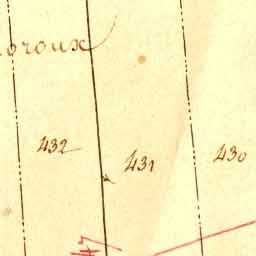 oroux
432
431
430